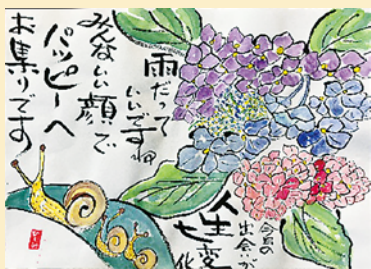 雨だって
いいですね
みんないい顔で
パッピーへ
お集りです
今日の
出会いが
人生
七変化